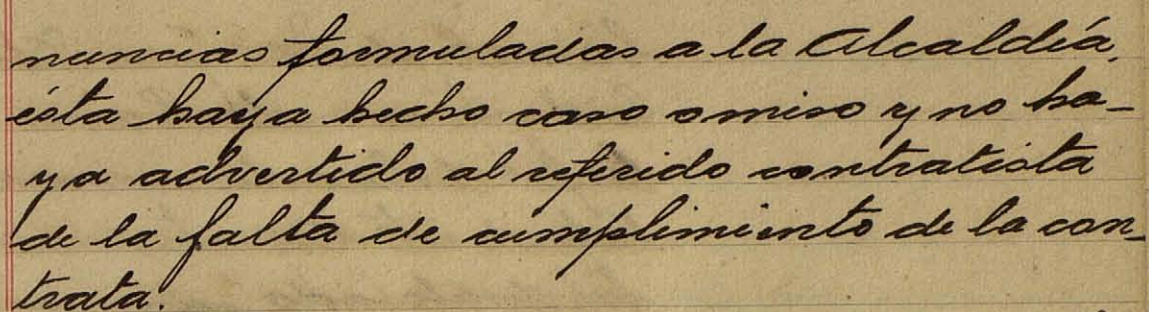 nuncias formuladas a la Alcaldía,
ésta haya hecho caso omiso y no ha-
ya advertido al referido contratista
de la falta de cumplimiento de la con-
trata.